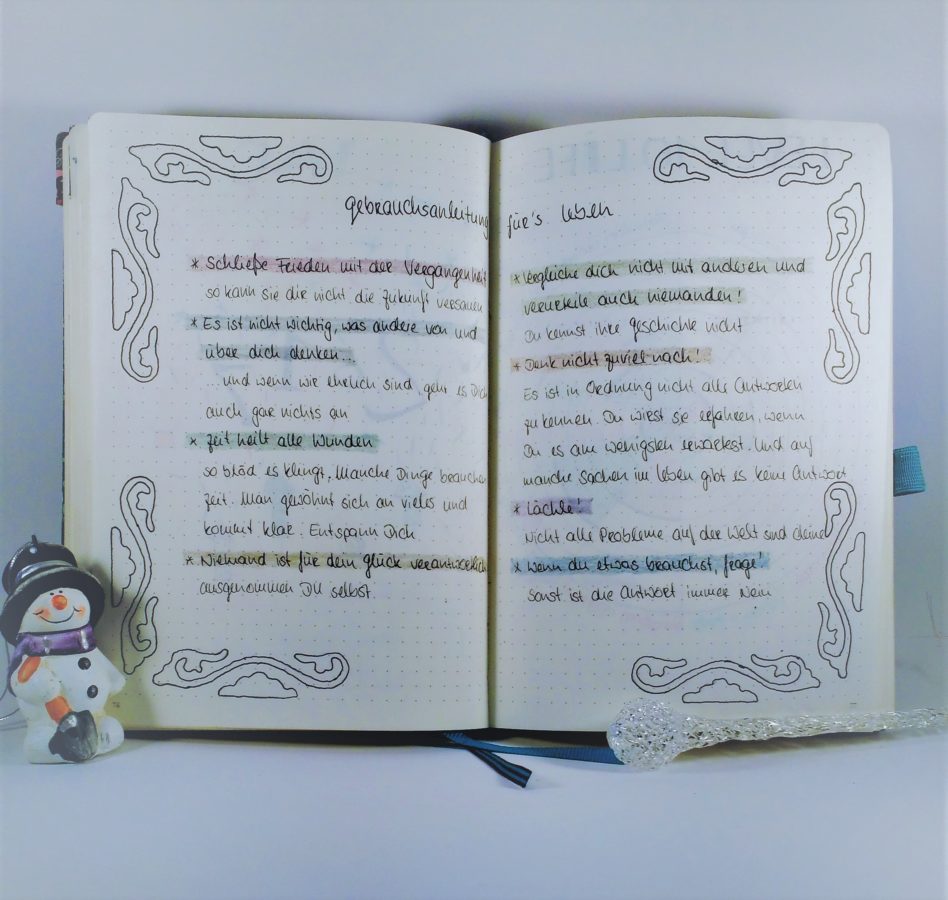 gebrauchsanleitung für's leben
* Schließe Frieden mit der Vergangenheit
so kann sie dir nicht die Zukunft versauen
* Es ist nicht wichtig, was andere von und
über dich denken...
...und wenn wir ehrlich sind, geht es Dich
auch gar nichts an
* Zeit heilt alle Wunden
so blöd es klingt, Manche Dinge brauchen
Zeit. Man gewöhnt sich an vieles und
kommt klar. Entspann Dich
* Niemand ist für dein glück verantwortlich
ausgenommen Du selbst.
* Vergleiche dich nicht mit anderen und
verurteile auch niemanden!
Du kennst ihre Geschichte nicht
* Denk nicht zuviel nach!
Es ist in Ordnung nicht alle Antworten
zu kennen. Du wirst sie erfahren, wenn
Du es am wenigsten erwartest. Und auf
manche Sachen im leben gibt es keine Antwort
* Lächle!
Nicht alle Probleme auf der Welt sind deine
* Wenn du etwas brauchst, frage!
Sonst ist die Antwort immer Nein